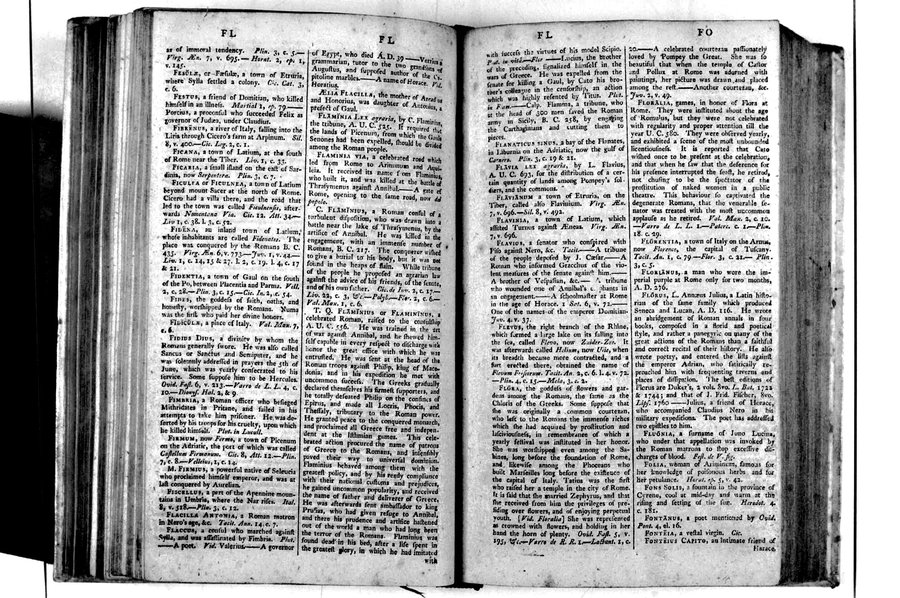 FL
as of immoral tendency. Plin. 3, c. 5.—
Virg. Æn. 7, v. 695.—Horat. 2, ep. 1,
v. 145.
FESŬLÆ, or Fæsulæ, a town of Etruria,
where Sylla settled a colony. Cic. Cat. 3,
c. 6.
FESTUS, a friend of Domitian, who killed
himself in an illness. Martial 1, ep. 79.——
Porcius, a proconsul who succeeded Felix as
governor of Judæa, under Claudius.
FIBRENUS, a river of Italy, falling into the
Liris through Cicero's farm at Arpinum. Sil.
8, v. 400.—Cic. Leg. 2, c. 1.
FICANA, a town of Latium, at the south
of Rome near the Tiber. Liv. 1, c. 33.
FICARIA, a small island on the east of Sardinia,
now Serpentera. Plin. 3, c. 7.
FICULEA or FICULNEA, a town of Latium
beyond mount Sacer at the north of Rome.
Cicero had a villa there, and the road that
led to the town was called Ficulensis, afterwards
Nomentana Via. Cic. 12. Att. 34.—
Liv. 1, c. 38. l. 3, c. 52.
FIDĒNA, an inland town of Latium,
whose inhabitants are called Fidenates. The
place was conquered by the Romans B. C.
435. Virg. Æn. 6, v. 773.—Juv. 1, v. 44.—
Liv. 1, c. 14, 15 & 27. l. 2, c. 19. l. 4, c. 17
& 21.
FIDENTIA, a town of Gaul on the south
of the Po, between Placentia and Parma. Vell.
2, c. 28.—Plin. 3, c. 15.—Cic. In. 2, c. 54.
FIDES, the goddess of faith, oaths, and
honesty, worshipped by the Romans. Numa
was the first who paid her divine honors.
FIDICULÆ, a place of Italy. Val. Max. 7,
c. 6.
FIDIUS DIUS, a divinity by whom the
Romans generally swore. He was also called
Sancus or Sanctus and Semipater, and he
was solemnly addressed in prayers the 5th of
June, which was yearly consecrated to his
service. Some suppose him to be Hercules.
Ovid. Fast. 6, v. 213.—Varro de L. L. 4, c.
10.—Dionys. Hal. 2, & 9.
FIMBRIA, a Roman officer who besieged
Mithridates in Pritane, and failed in his
attempts to take him prisoner. He was deserted
by his troops for his cruelty, upon which
he killed himself. Plut. in Lucull.
FIRMUM, now Fermo, a town of Picenum
on the Adriatic, the port of which was called
Castellum Firmanum. Cic. 8, Att. 12.—Plin.
7, c. 8.—Velleius, 1, c. 14.
M. FIRMIUS, a powerful native of Seleucia
who proclaimed himself emperor, and was at
last conquered by Aurelian.
FISCELLUS, a part of the Apennine mountains
in Umbria, where the Nar rises. Ital.
8, v. 518.—Plin. 3, c. 12.
FLACILLA ANTONIA, a Roman matron
in Nero's age, &c. Tacit. Ann. 14, c. 7.
FLACCUS, a consul who marched against
Sylla, and was assassinated by Fimbria. Plut.
——A poet. Vid. Valerius.——A governor
FL
of Egypt, who died A. D. 39.——Verrius a
grammarian, tutor to the two grandsons of
Augustus, and supposed author of the Capitoline
marbles.——A name of Horace. Vid.
Horatius.
ÆLIA FLACILLA, the mother of Arcadius
and Honorius, was daughter of Antonius, a
prefect of Gaul.
FLĀMINIA LEX agraria, by C. Flaminius
the tribune, A. U. C. 525. It required that
the lands of Picenum, from which the Gauls
Senones had been expelled, should be divided
among the Roman people.
FLAMINIA VIA, a celebrated road which
led from Rome to Ariminum and Aquileia.
It received its name from Flaminius,
who built it, and was killed at the battle of
Thrasymenus against Annibal.——A gate of
Rome, opening to the same road, now del
popolo.
C. FLAMINIUS, a Roman consul of a
turbulent disposition, who was drawn into a
battle near the lake of Thrasymenus, by the
artifice of Annibal. He was killed in the
engagement, with an immense number of
Romans, B. C. 217. The conqueror wished
to give a burial to his body, but it was not
found in the heaps of slain. While tribune
of the people he proposed an agrarian law
against the advice of his friends, of the senate,
and of his own father. Cic. de Inv. 2, c. 17.—
Liv. 22, c. 3, &c.—Polyb.—Flor. 2, c. 6.—
Val. Max. 1, c. 6.
T. Q. FLĀMINIUS or FLAMININUS, a
celebrated Roman, raised to the consulship
A. U. C. 556. He was trained in the art
of war against Annibal, and he shewed himself
capable in every respect to discharge with
honor the great office with which he was
entrusted. He was sent at the head of the
Roman troops against Philip, king of Macedonia,
and in his expedition he met with
uncommon success. The Greeks gradually
declared themselves his firmest supporters, and
he totally defeated Philip on the confines of
Epirus, and made all Locris, Phocis, and
Thessaly, tributary to the Roman power.
He granted peace to the conquered monarch,
and proclaimed all Greece free and independent
at the Isthmian games. This celebrated
action procured the name of patrons
of Greece to the Romans, and insensibly
paved their way to universal dominion.
Flaminius behaved among them with the
greatest policy, and by his ready compliance
with their national customs and prejudices,
he gained uncommon popularity, and received
the name of father and deliverer of Greece.
He was afterwards sent ambassador to king
Prusias, who had given refuge to Annibal,
and there his prudence and artifice hastened
out of the world a man who had long been
the terror of the Romans. Flaminius was
found dead in his bed, after a life spent in
the greatest glory, in which he had imitated
with
FL
with success the virtues of his model Scipio.
Plut. in vitâ.—Flor.——Lucius, the brother
of the preceding, signalized himself in the
wars of Greece. He was expelled from the
senate for killing a Gaul, by Cato his brother's
colleague in the censorship, an action
which was highly resented by Titus. Plut.
in Flam.——Calp. Flamma, a tribune, who
at the head of 300 men saved the Roman
army in Sicily, B. C. 258, by engaging
the Carthaginians and cutting them to
pieces.
FLANATICUS SINUS, a bay of the Flanates,
in Liburnia on the Adriatic, now the gulf of
Carnero. Plin. 3, c. 19 & 21.
FLAVIA LEX agraria, by L. Flavius,
A. U. C. 693, for the distribution of a certain
quantity of lands among Pompey's soldiers,
and the commons.
FLAVIĀNUM a town of Etruria, on the
Tiber, called also Flavinium. Virg. Æn.
7, v. 696.—Sil. 8, v. 492.
FLAVINIA, a town of Latium, which
assisted Turnus against Æneas. Virg. Æn.
7, v. 696.
FLAVIUS, a senator who conspired with
Piso against Nero, &c. Tacit.——A tribune
of the people deposed by J. Cæsar.——A
Roman who informed Gracchus of the violent
measures of the senate against him.——
A brother of Vespasian, &c.——A tribune
who wounded one of Annibal's elephants in
an engagement.——A schoolmaster at Rome
in the age of Horace. 1 Sat. 6, v. 72.——
One of the names of the emperor Domitian.
Juv. 4, v. 37.
FLEVUS, the right branch of the Rhine,
which formed a large lake on its falling into
the sea, called Flevo, now Zuider-Zee. It
was afterwards called Helium, now Ulie, when
its breadth became more contracted, and a
fort erected there, obtained the name of
Flevum Frisiorum. Tacit. An. 2, c. 6. l. 4, v. 72.
—Plin. 4, c. 15.—Mela, 3, c. 2.
FLŌRA, the goddess of flowers and gardens
among the Romans, the same as the
Chloris of the Greeks. Some suppose that
she was originally a common courtezan,
who left to the Romans the immense riches
which she had acquired by prostitution and
lasciviousness, in remembrance of which a
yearly festival was instituted in her honor.
She was worshipped even among the Sabines,
long before the foundation of Rome,
and likewise among the Phoceans who
built Marseilles long before the existence of
the capital of Italy. Tatius was the first
who raised her a temple in the city of Rome.
It is said that she married Zephyrus, and that
she received from him the privileges of presiding
over flowers, and of enjoying perpetual
youth. [Vid. Floralia] She was represented
as crowned with flowers, and holding in her
hand the horn of plenty. Ovid. Fast. 5, v.
195, &c.—Varro de R. R. 1.—Lactant. 1, c.
FO
20.——A celebrated courtezan passionately
loved by Pompey the Great. She was so
beautiful that when the temple of Castor
and Pollux at Rome was adorned with
paintings, her picture was drawn and placed
among the rest.——Another courtezan, &c.
Juv. 2, v. 49.
FLORĀLIA, games, in honor of Flora at
Rome. They were instituted about the age
of Romulus, but they were not celebrated
with regularity and proper attention till the
year U. C. 580. They were observed yearly,
and exhibited a scene of the most unbounded
licentiousness. It is reported that Cato
wished once to be present at the celebration,
and that when he saw that the deference for
his presence interrupted the feast, he retired,
not chusing to be the spectator of the
prostitution of naked women in a public
theatre. This behaviour so captivated the
degenerate Romans, that the venerable senator
was treated with the most uncommon
applause as he retired. Val. Max. 2, c. 10.
—Varro de L. L. 1.—Paterc. c. 1.—Plin.
18, c. 29.
FLORENTIA, a town of Italy on the Arnus,
now Florence, the capital of Tuscany.
Tacit. An. 1, c. 79.—Flor. 3, c. 21.—Plin.
3, c. 5.
FLORIĀNUS, a man who wore the imperial
purple at Rome only for two months,
A. D. 276.
FLŌRUS, L. Annæus Julius, a Latin historian
of the same family which produced
Seneca and Lucan, A. D. 116. He wrote
an abridgement of Roman annals in four
books, composed in a florid and poetical
style, and rather a panegyric on many of the
great actions of the Romans than a faithful
and correct recital of their history. He also
wrote poetry, and entered the lists against
the emperor Adrian, who satirically reproached
him with frequenting taverns and
places of dissipation. The best editions of
Florus are Duker's, 2 vols. 8vo. L. Bat. 1722
& 1744; and that of J. Frid. Fischer, 8vo.
Lips. 1760.——Julius, a friend of Horace,
who accompanied Claudius Nero in his
military expeditions. The poet has addressed
two epistles to him.
FLUONIA, a surname of Juno Lucina,
who under that appellation was invoked by
the Roman matrons to stop excessive discharges
of blood. Fest. de V. sig.
FOLIA, woman of Ariminum, famous for
her knowledge of poisonous herbs and for
her petulance. Horat. ep. 5, v. 42.
FONS SOLIS, a fountain in the province of
Cyrene, cool at mid-day and warm at the
rising and setting of the sun. Herodot. 4.
c. 181.
FONTĀNUS, a poet mentioned by Ovid.
Pont. 4, el. 16.
FONTĒIA, a vestal virgin. Cic.
FONTĒIUS CAPITO, an intimate friend of
Horace.